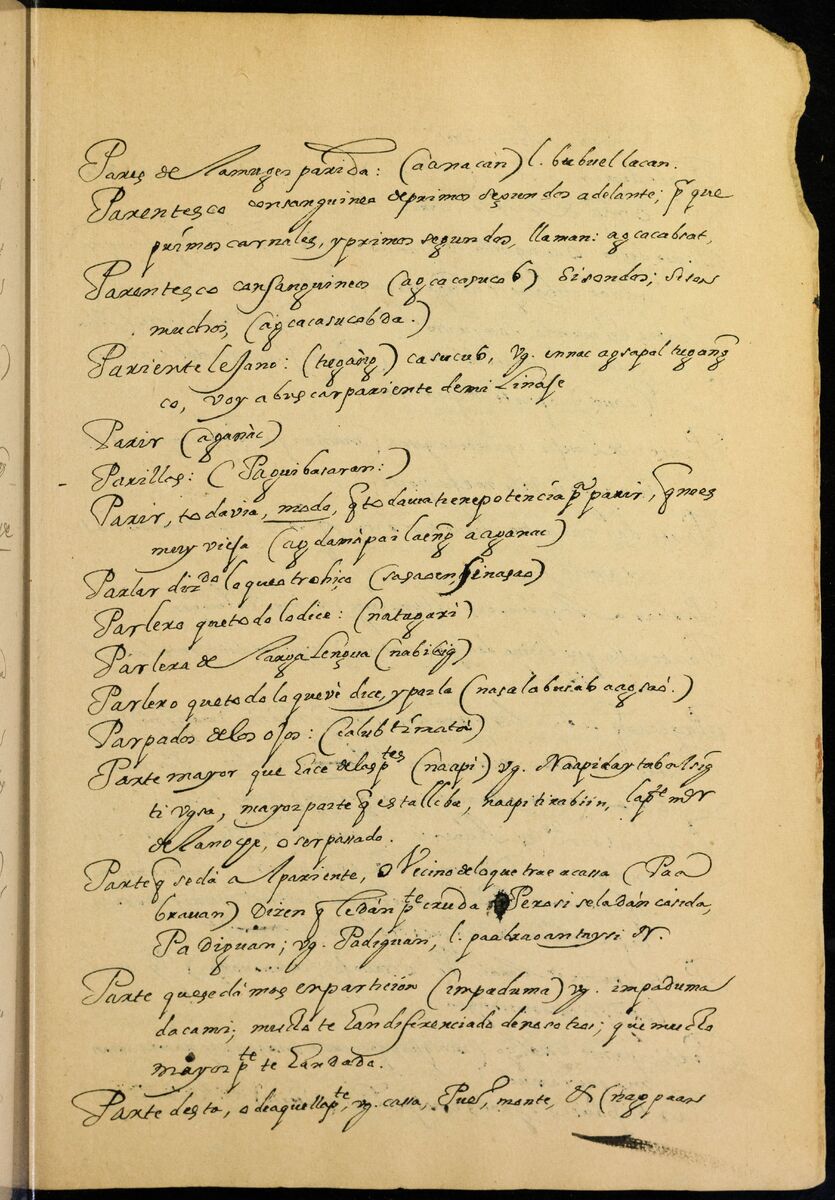 Pares de la muger parida: (àanacan) l. bubuel lacan.
Parentesco consanguineo de primos segundos adelante; pr que
primos carnales, y primos segundos, llaman: agcacabsat,
Parentesco consanguineos (agcacasucob) si son dos; si son
muchos, (agcacasucobda.)
Pariente lejano: (tugàng) casucub, vg. innac agsapal tugang
co, voy a buscar pariente de mi linaje
Parir (aganàc)
Parillas: (Paguibasaran:)
Parir, todavia, modo, q to davia tiene potencia pa parir, q no es
muy vieja (ag damà pai laeng a aganac)
Parlar dizdo lo que otro hiço (sasaoen,
Parlero que todo lo dice: (natugari)
Parlera de larga lengua (nabibig)
Parlero que todo lo que vè dice, y parla (nasalabusab aagsaó.)
Parpados de los ojos: (calub ti matà)
Parte mayor que hace de las ptes (naapi) vg. Naapiday tabal sig
ti vgsa, mayor parte q es talleba, naapi ti rabiin, la pte mor
de la noche, o ser passado.
Parte q se dà al pariente, o Vecino de lo que trae a cassa (Paa
brauan) Dizen q le dàn pte cruda Pero si se la dàn cosida,
Padiguan; vg. Padiguàn, l. N.
Parte que se dà mos en particiòn (impaduma) vg. impaduma
dacami; mucho te han diferenciado de nosotros; que mucho
mayor pte te han dada.
Parte desta, o de aquella pte, vg. cassa, Puebo, monte, & (nagpaan